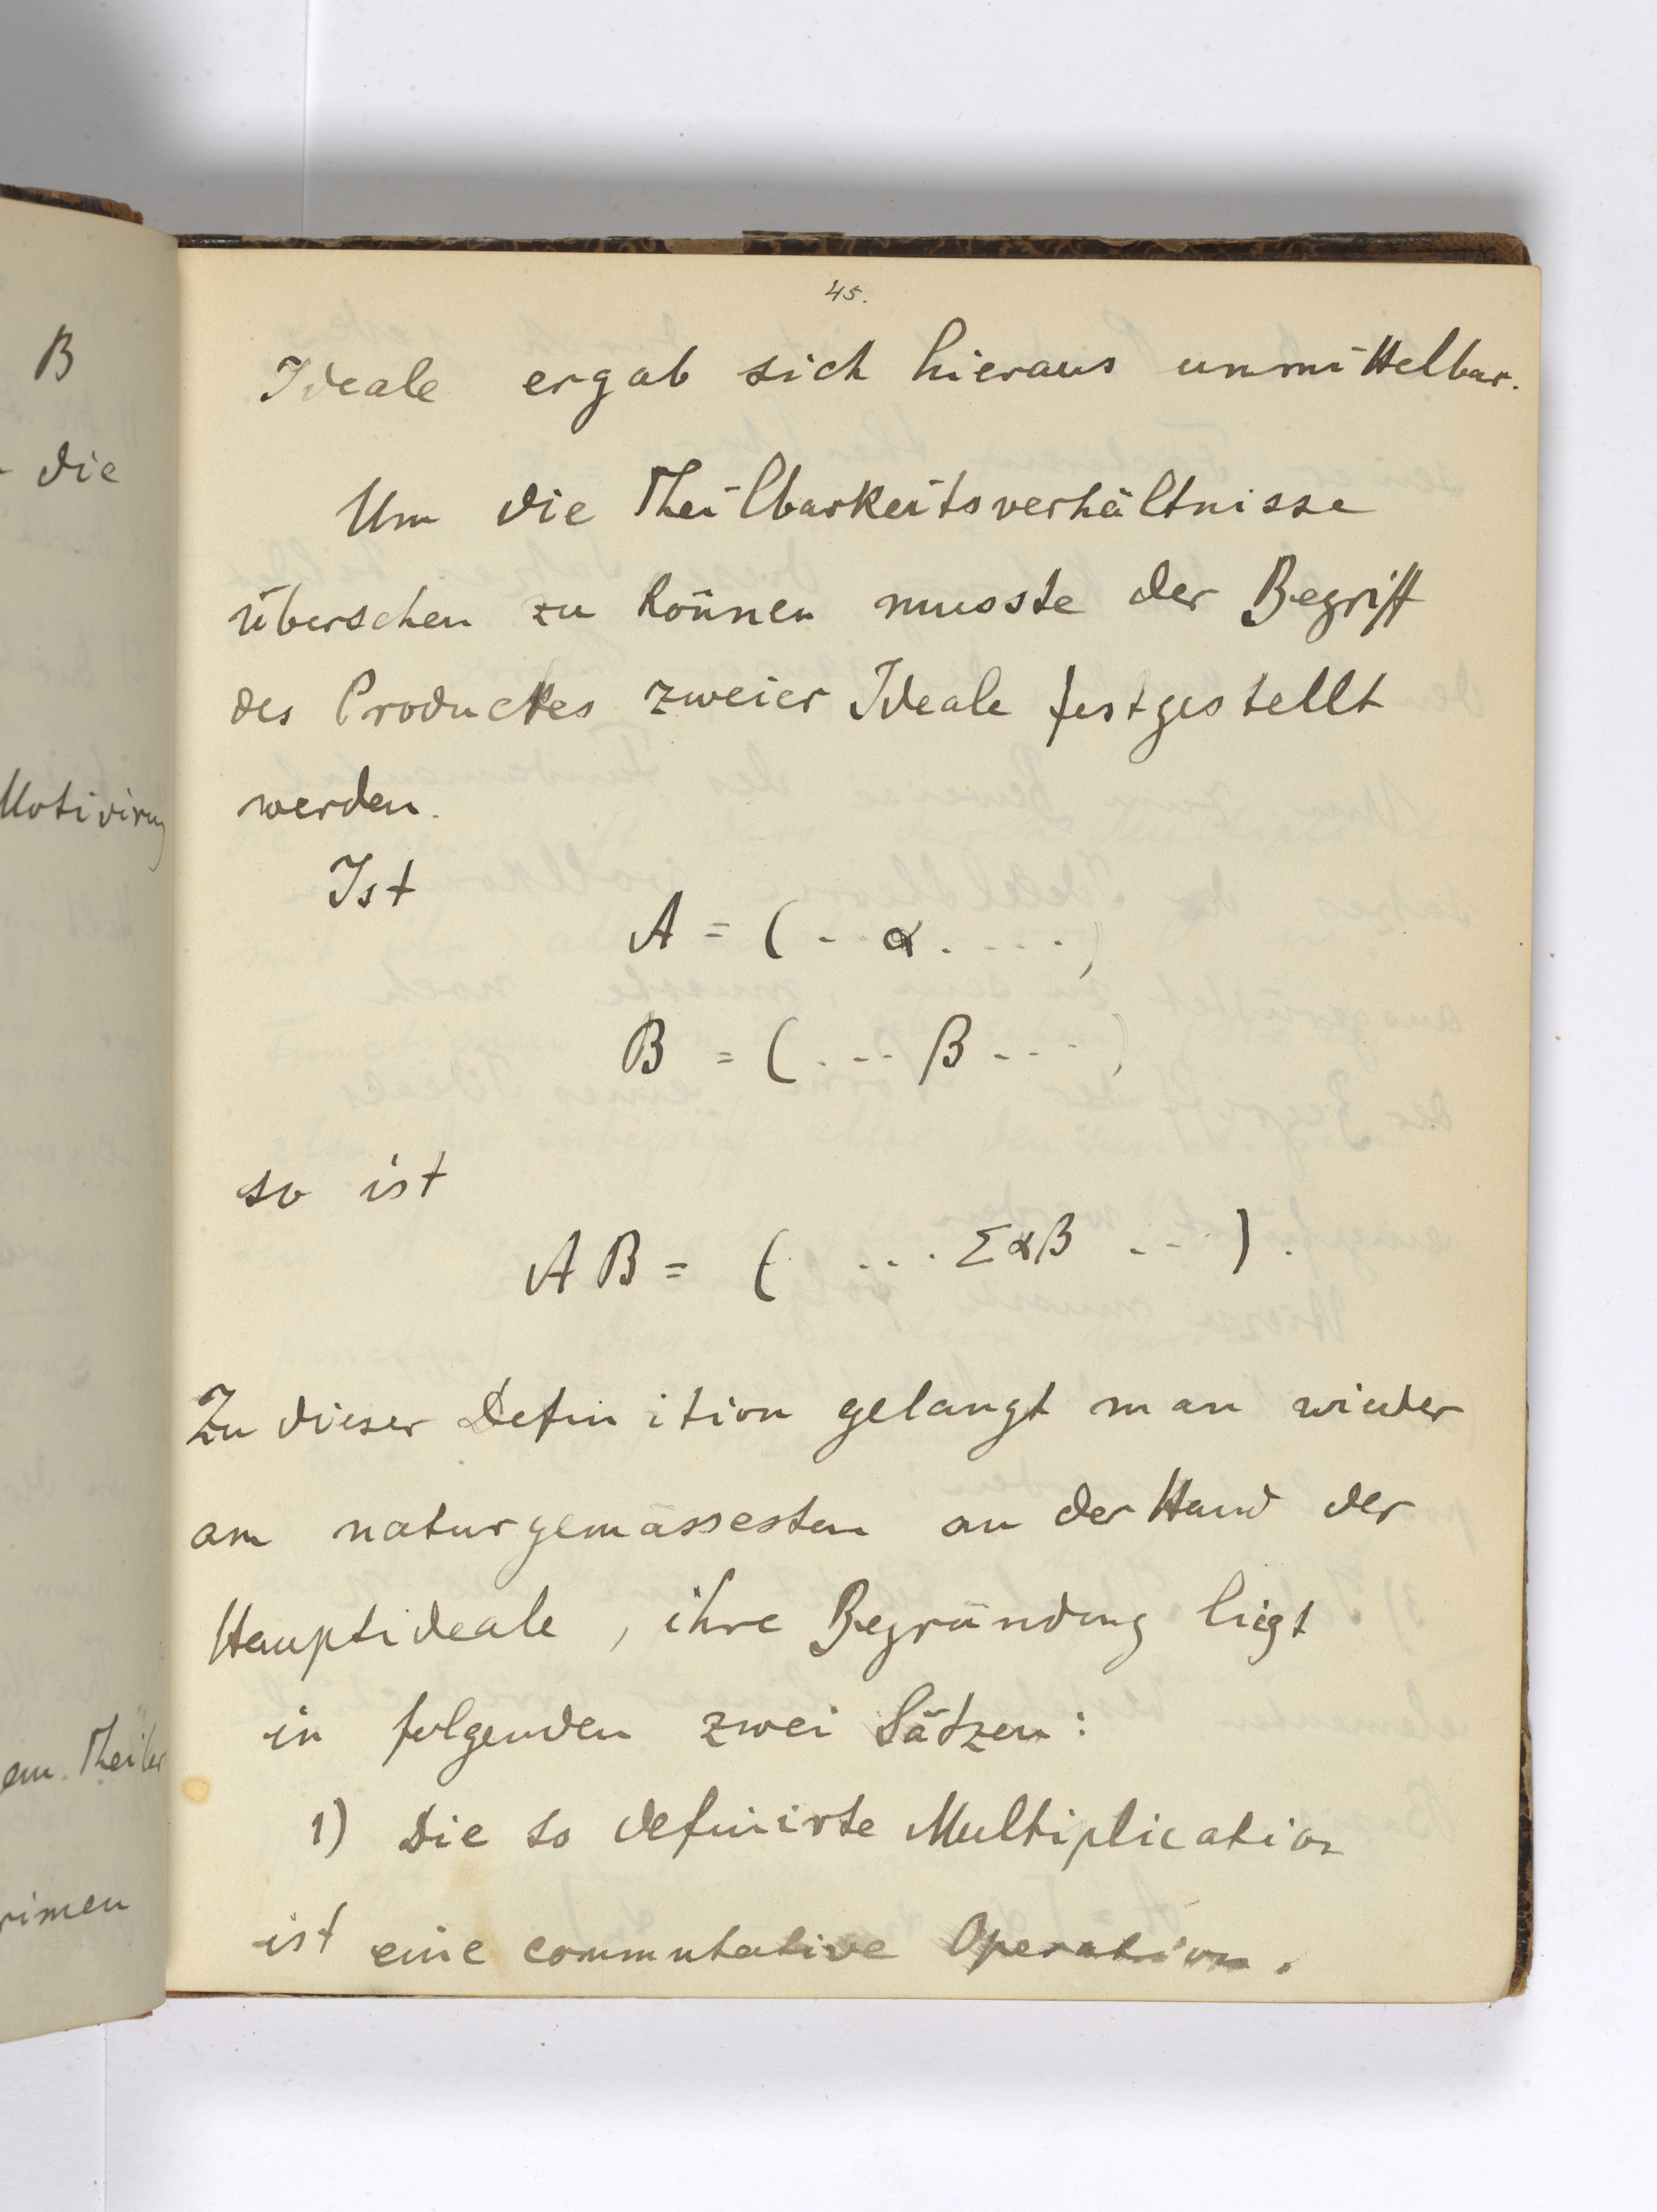 B
die
Motivirung
em Theiler
rimen
45.
Ideale ergab sich hieraus unmittelbar.
Um die Theilbarkeitsverhältnisse
übersehen zu können musste der Begriff
des Productes zweier Ideale festgestellt
werden.
Ist
A = ( . . α . . . . . )
B = ( . . . β . . . )
so ist
AB = ( . . . . Σαβ . . . ) .
Zu dieser Definition gelangt man wieder
am naturgemässesten an der Hand der
Hauptideale, ihre Begründung liegt
in folgenden zwei Sätzen:
1) Die so definirte Multiplication
ist eine commutative Operation.